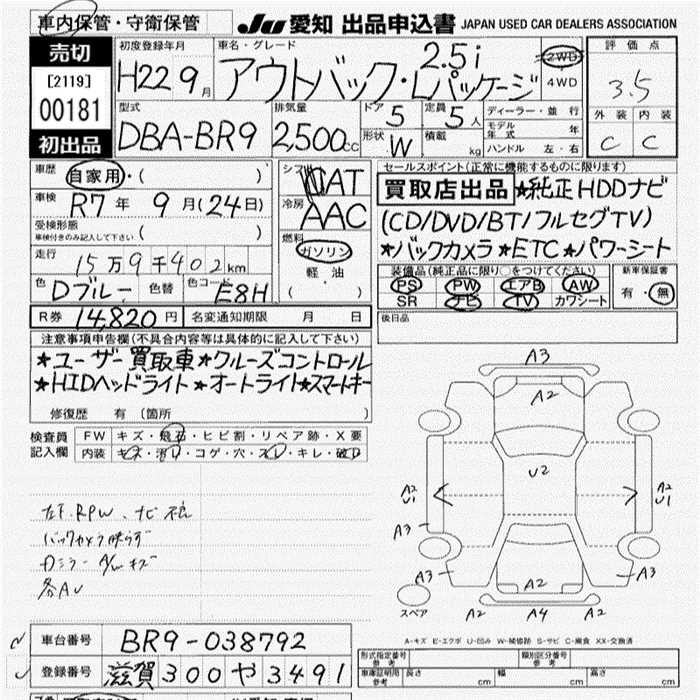 車内保管・守衛保管
JU 愛知 出品申込書 JAPAN USED CAR DEALERS ASSOCIATION
売切
[2119]
00181
初出品
初度登録年月
H22 9月
車名・グレード
アウトバック・2.5i Lパッケージ
2WD
4WD
評価点
3.5
外装 内装
C C
型式
DBA-BR9
排気量
2,500cc
ドア 5
定員 5人
形状 W
積載 kg
ディーラー・並行
モデル年式 年
ハンドル 左・右
車歴 自家用・( )
車検 R7年 9月(24日)
受検形態
車検付きのみ記入して下さい ( )
走行 15万9千402km
色 Dブルー 色替 色コード E8H
シフト AT
冷房 AAC
燃料
ガソリン
軽油
( )
セールスポイント(正常に機能するものに限ります)
買取店出品 ★純正HDDナビ
(CD/DVD/BT/フルセグTV)
★バックカメラ★ETC★パワーシート
装備品(純正品に限り○をつけてください)
PS PW エアB AW
SR ナビ TV カワシート
新車保証書
有・無
R券 14,820円 名変通知期限 月 日
後日品
注意事項申告欄(不具合内容等は具体的に記入して下さい)
★ユーザー買取車★クルーズコントロール
★HIDヘッドライト★オートライト★スマートキー
修復歴 有 (箇所 )
検査員記入欄
FW キズ・飛石・ヒビ割・リペア跡・X要
内装 キズ・汚レ・コゲ・穴・スレ・キレ・破レ
左下.RPW、ナビ
バックカメラ映らず
各AU
A3
A2
U2
A2 U1
A2 U1
A3
A3
A3
A2
A2 A4 A2
スペア
A-キズ E-エクボ U-凹み W-補修跡 S-サビ C-腐食 XX-交換済
車台番号 BR9-038792
登録番号 滋賀300や3491
型式指定番号 参考
類別区分番号 参考
車庫証明用 参考 長さ cm 幅 cm 高さ cm